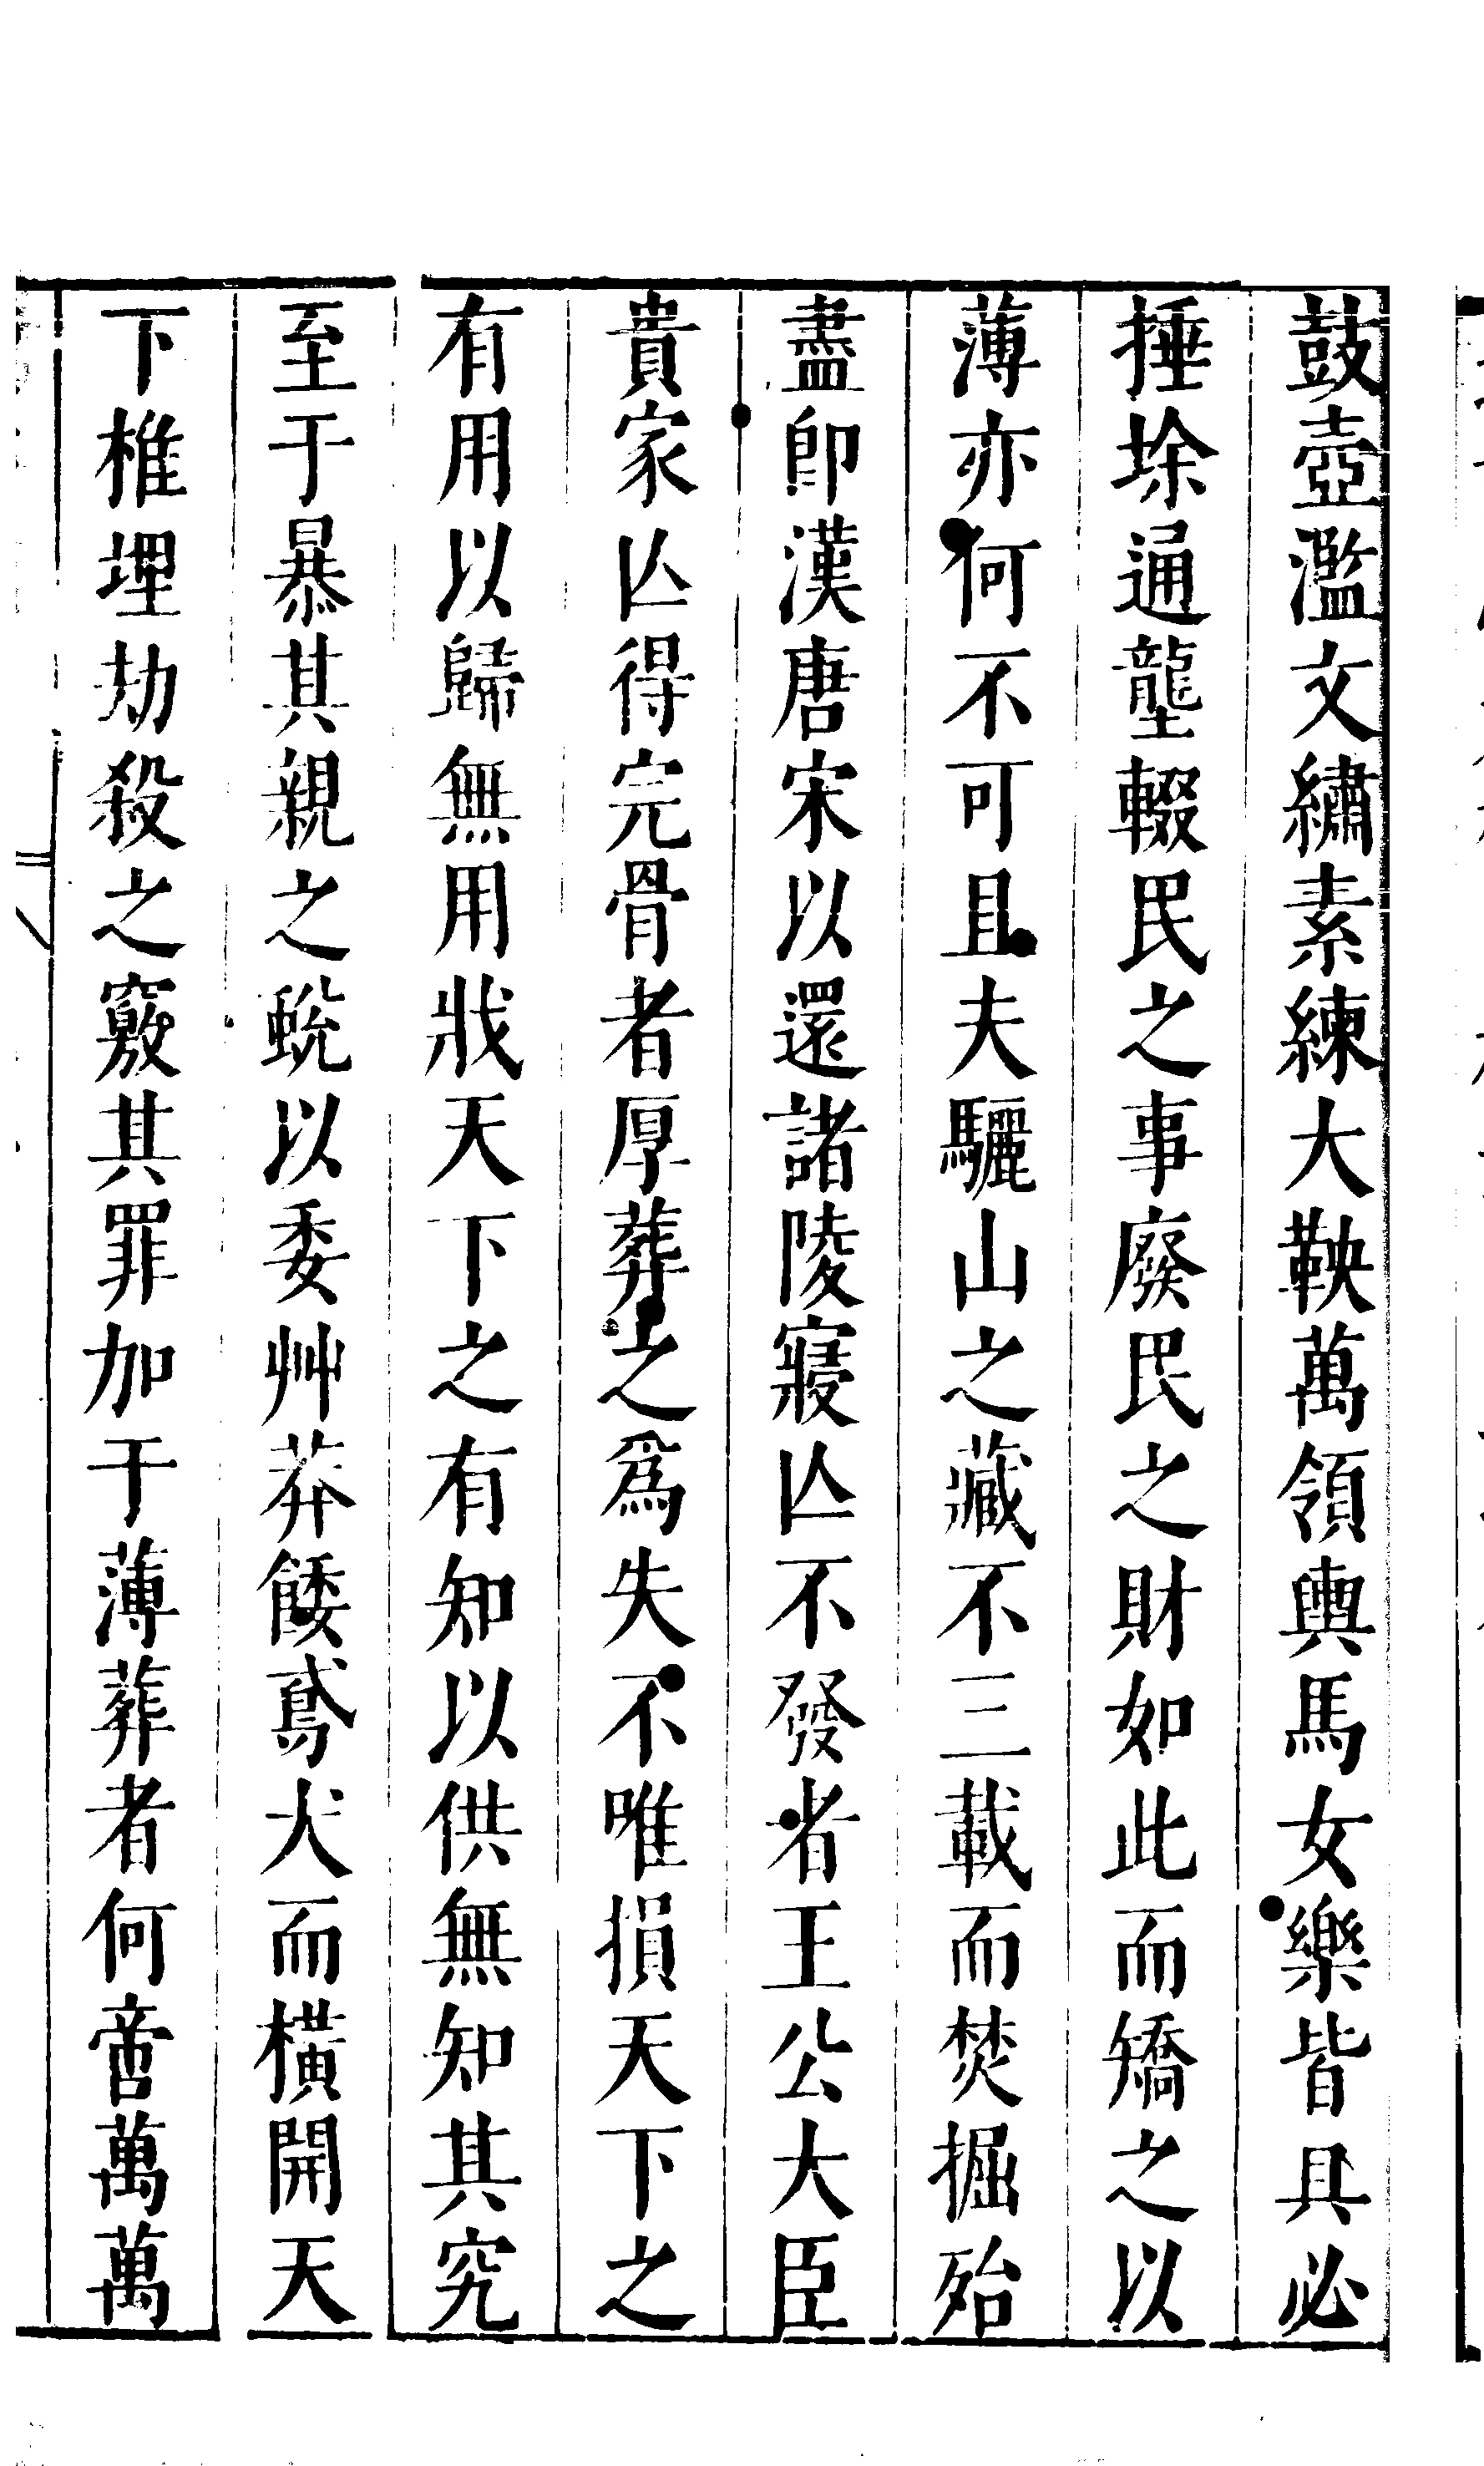 鼓壺濫文繡素練大鞅萬領輿馬女樂皆具必
捶垛通壟輟民之事廢民之財如此而矯之以
薄亦何不可且夫驪山之藏不三載而焚掘殆
盡卽漢唐宋以還諸陵寢亾不發者王公大臣
貴家亾得完骨者厚葬之爲失不唯損天下之
有用以歸無用戕天下之有知以供無知其究
至于暴其親之蛻以委艸莽餧鳶犬而橫開天
下椎埋劫殺之竅其罪加于薄葬者何啻萬萬